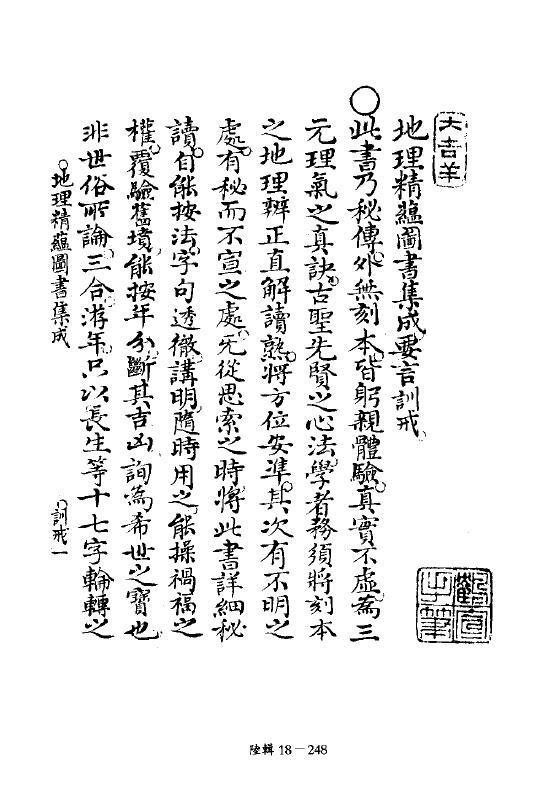 大吉羊
地理精蘊圖書集成要言訓戒
○此書乃秘傳外無刻本皆躬親體驗真實不虛為三
元理氣之真訣古聖先賢之心法學者務須將刻本
之地理辨正直解讀熟將方位安準其次有不明之
處有秘而不宣之處無從思索之時將此書詳細秘
讀自能按法字句透徹講明隨時用之能操禍福之
權覆驗舊墳能按年分斷其吉凶詢為希世之寶也
非世俗所論三合游年只以長生等十七字輪轉之
地理精蘊圖書集成
訓戒一
陸輯 18－248